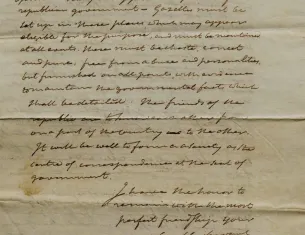 republican government - Gazettes must be
set up in those places which may appear
eligible for the purpose, and must be monitored
at all events. These must be chaste, correct
and pure; free from abuse and personalities
but furnished on all points with evidence
to maintain the governmental fact which
shall be detailed. The friends of the
on a part of the country as to the other
It will be well to form a society as the
centre of correspondence at the seat of
government.
I have the honor to
remain with the most
perfect friendship your